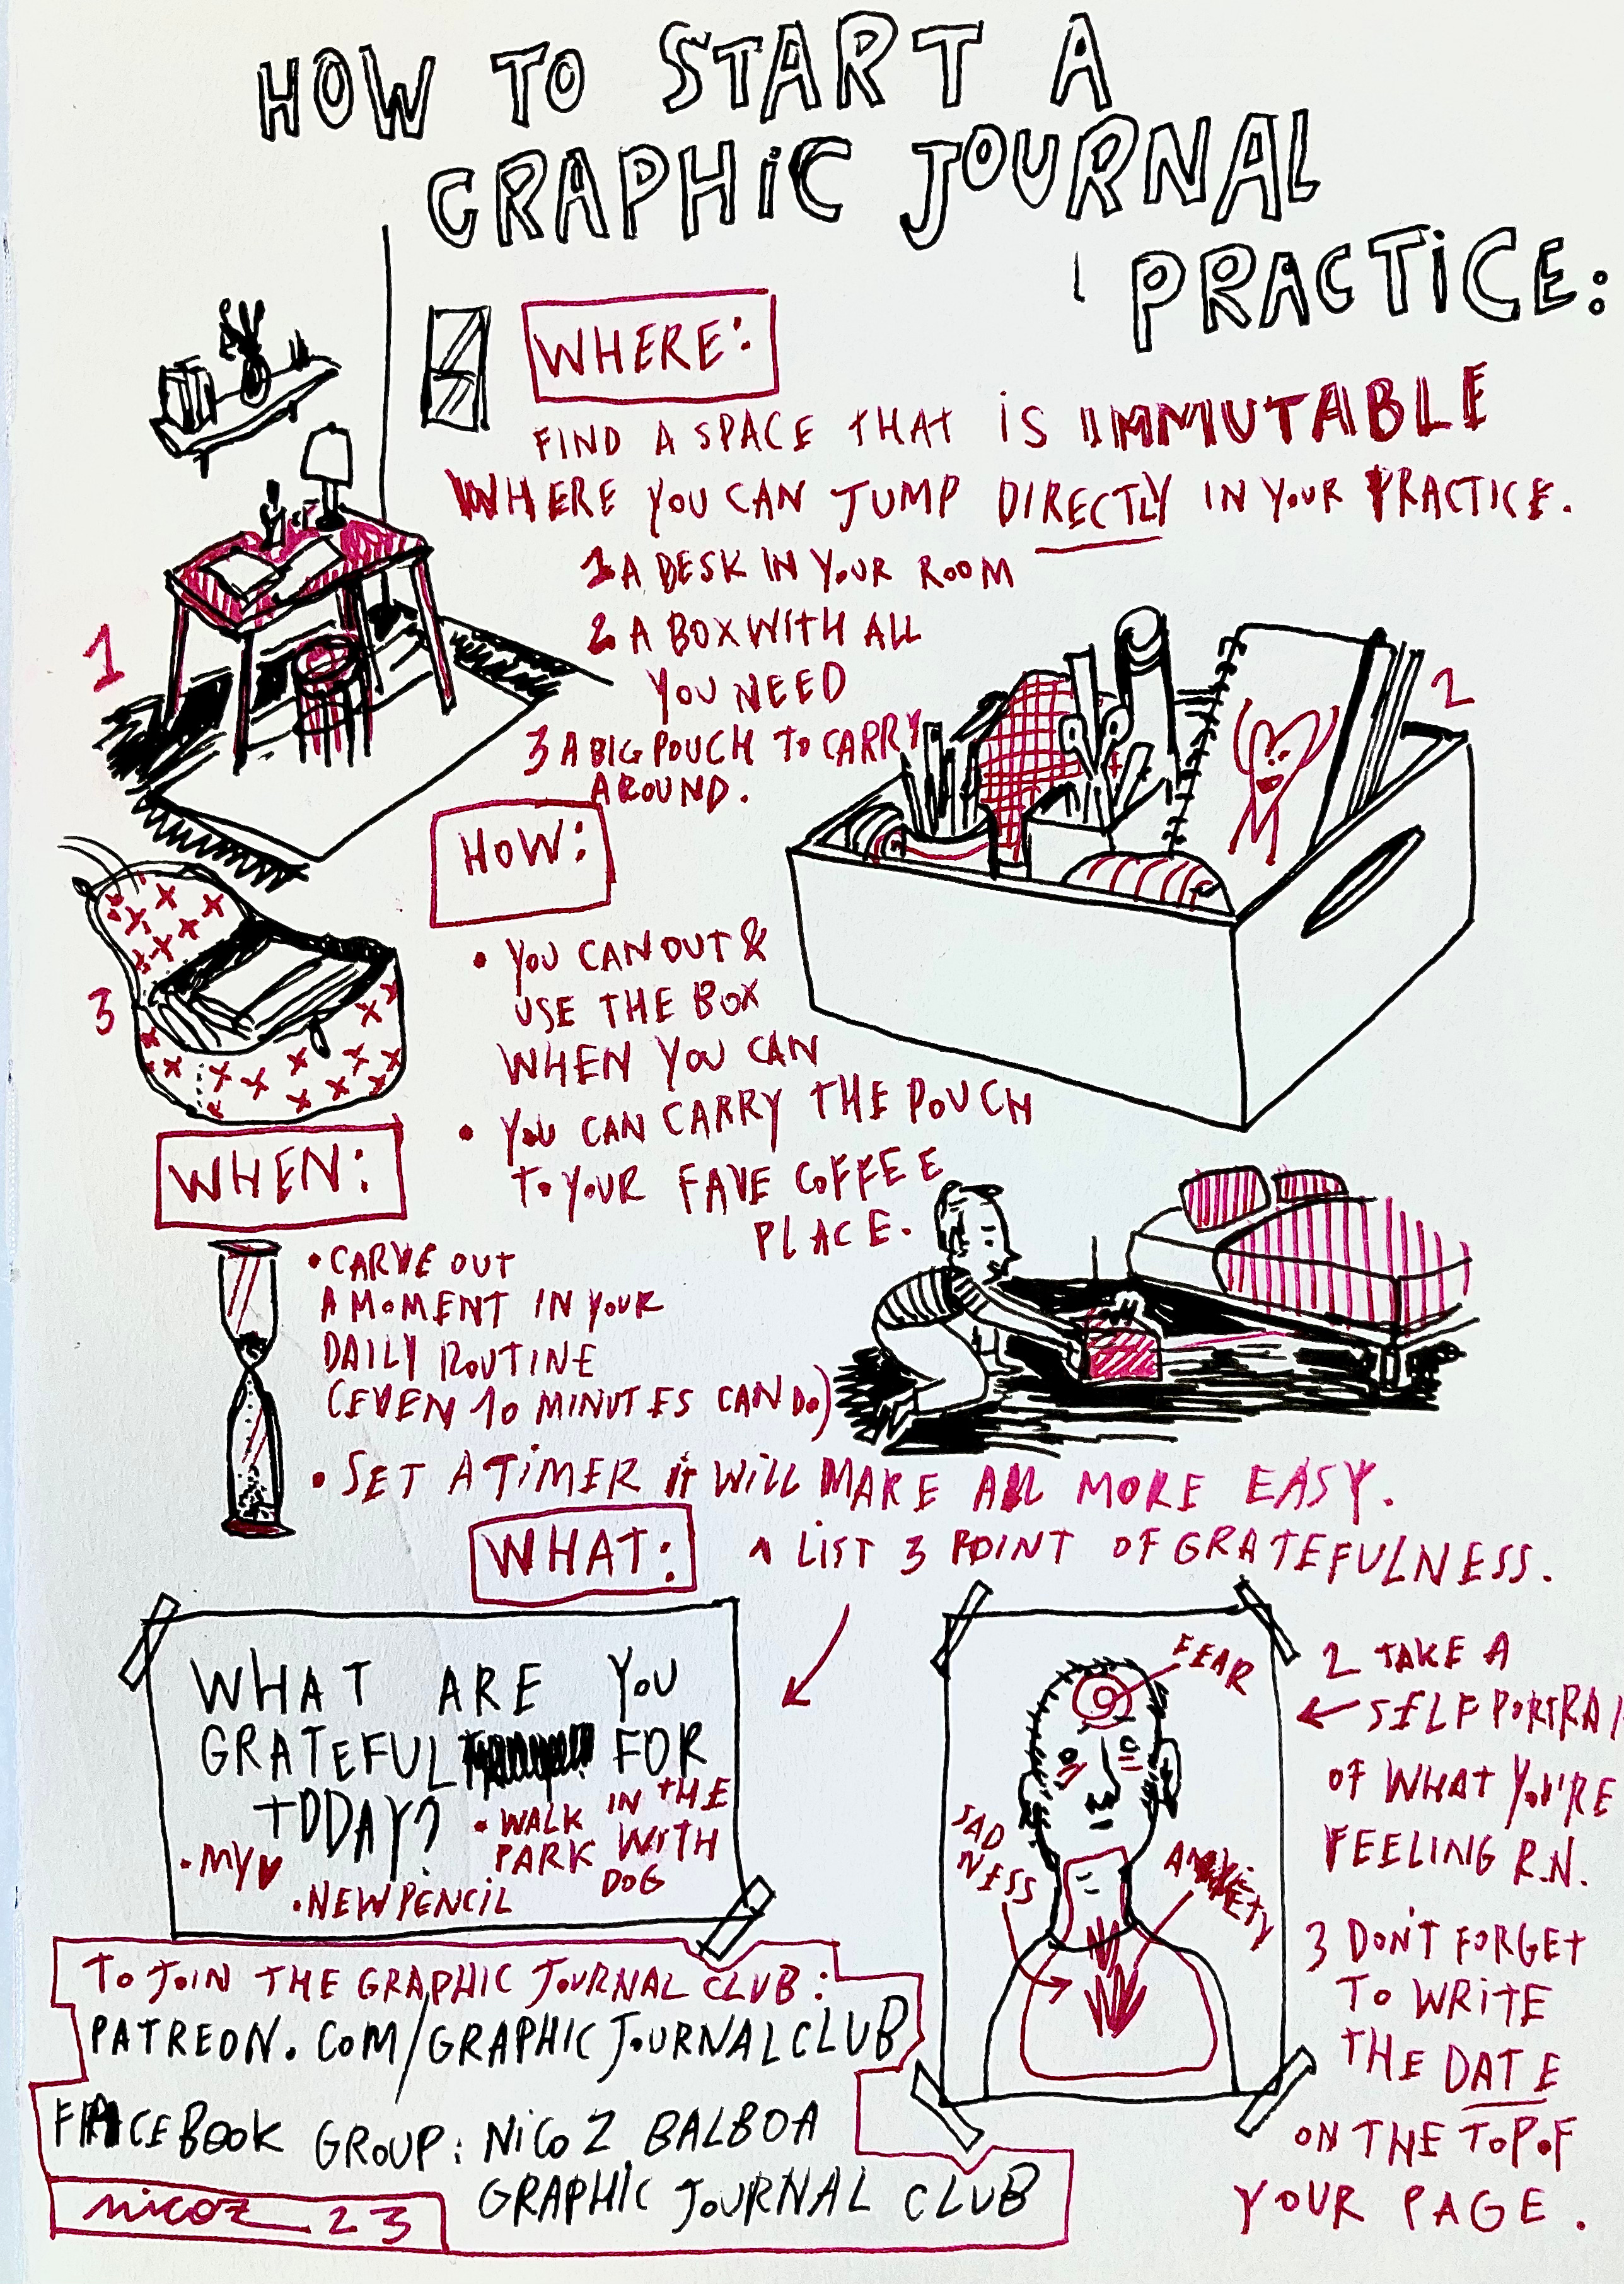 HOW TO START A
GRAPHIC JOURNAL
PRACTICE:
WHERE:
FIND A SPACE THAT IS IMMUTABLE
WHERE YOU CAN JUMP DIRECTLY IN YOUR PRACTICE.
1 A DESK IN YOUR ROOM
2 A BOX WITH ALL
YOU NEED
3 A BIG POUCH TO CARRY
AROUND.
1
2
3
HOW:
• YOU CAN OUT &
USE THE BOX
WHEN YOU CAN
• YOU CAN CARRY THE POUCH
TO YOUR FAVE COFFEE
PLACE.
WHEN:
• CARVE OUT
A MOMENT IN YOUR
DAILY ROUTINE
(EVEN 10 MINUTES CAN DO)
• SET A TIMER IT WILL MAKE ALL MORE EASY.
WHAT:
1 LIST 3 POINT OF GRATEFULNESS.
WHAT ARE YOU
GRATEFUL FOR
TODAY?
• MY ♥
• NEW PENCIL
• WALK IN THE
PARK WITH
DOG
FEAR
SAD
NESS
ANXIETY
2 TAKE A
SELF PORTRAI
OF WHAT YOU'RE
FEELING R.N.
3 DON'T FORGET
TO WRITE
THE DATE
ON THE TOP OF
YOUR PAGE.
TO JOIN THE GRAPHIC JOURNAL CLUB:
PATREON.COM/GRAPHICJOURNALCLUB
FACEBOOK GROUP: NICOZ BALBOA
GRAPHIC JOURNAL CLUB
nicoz 23